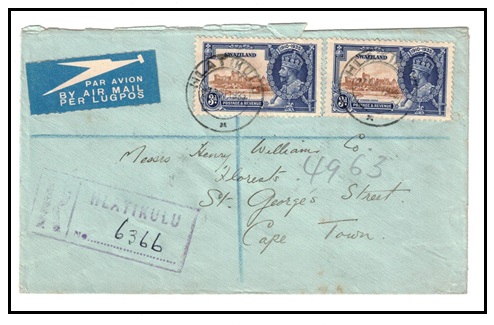 PAR AVION
BY AIR MAIL
PER LUGPOS
SWAZILAND
1910-1935
3d
POSTAGE & REVENUE
SWAZILAND
1910-1935
3d
POSTAGE & REVENUE
HLATIKULU
Messrs Henry Williams Co.
4963
Florests.
St. George's Street.
Cape Town.
HLATIKULU
No. 6366